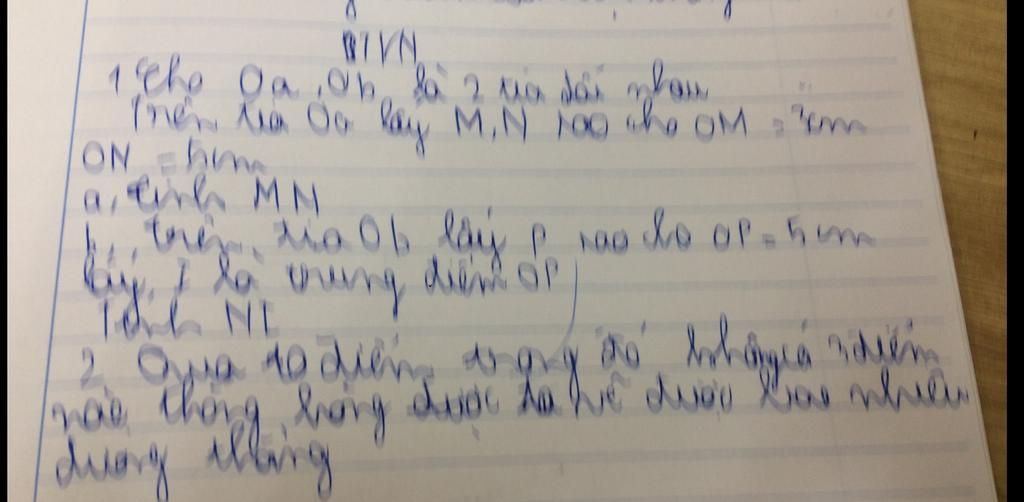 BTVN
1 Cho Oa, Ob là 2 tia đối nhau
Trên tia Oa lấy M, N sao cho OM = 3cm
ON = 5cm
a, tính MN
b, trên tia Ob lấy P sao cho OP = 5cm
lấy I là trung điểm OP
Tính NI
2 Qua 10 điểm trong đó không có 3 điểm
nào thẳng hàng được ta vẽ được bao nhiêu
đường thẳng